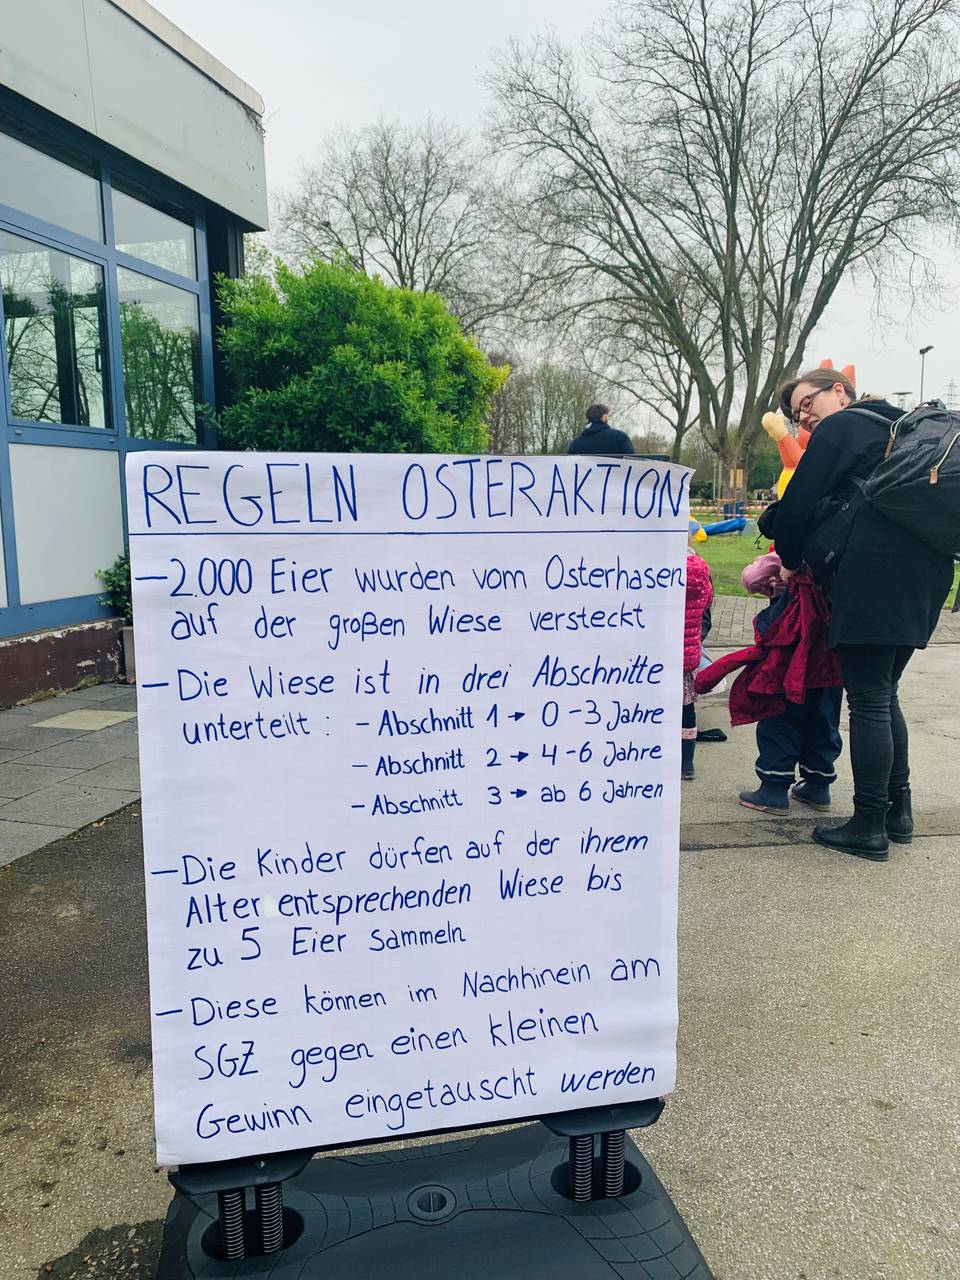 REGELN OSTERAKTION
- 2.000 Eier wurden vom Osterhasen
auf der großen Wiese versteckt
- Die Wiese ist in drei Abschnitte
unterteilt: - Abschnitt 1 → 0-3 Jahre
- Abschnitt 2 → 4-6 Jahre
- Abschnitt 3 → ab 6 Jahren
- Die Kinder dürfen auf der ihrem
Alter entsprechenden Wiese bis
zu 5 Eier sammeln
- Diese können im Nachhinein am
SGZ gegen einen kleinen
Gewinn eingetauscht werden